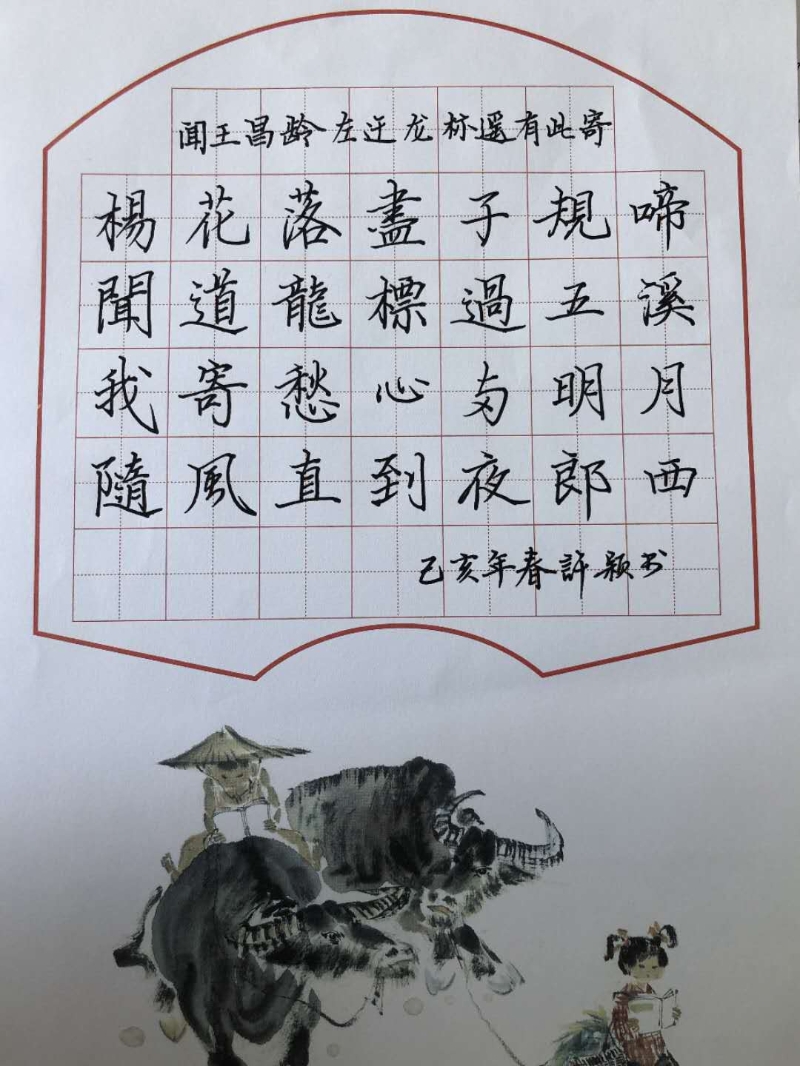 闻王昌龄左迁龙标遥有此寄
楊花落盡子規啼
聞道龍標過五溪
我寄愁心与明月
隨風直到夜郎西
己亥年春許颖书